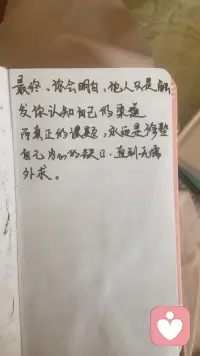 最终，你会明白，他人又是触
发你认知自己的渠道
而真正的课题，永远是修整
自己内心的缺口，直到无需
外求。